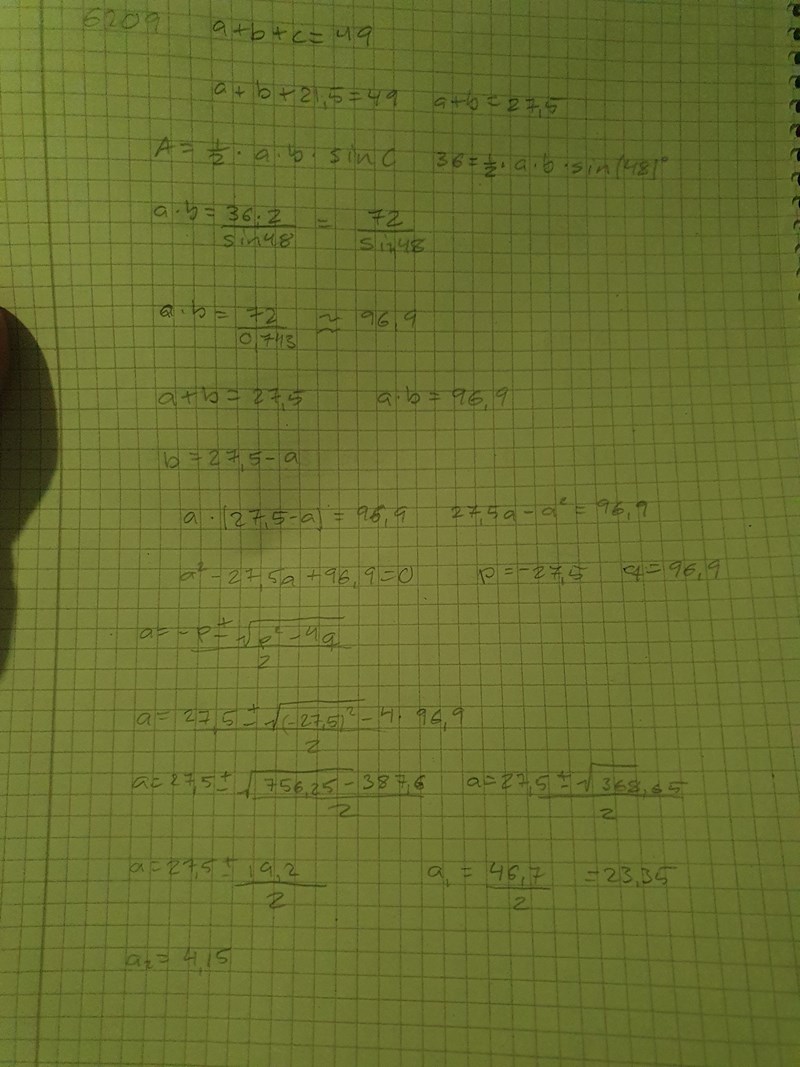 6209 a+b+c=49
a+b+21,5=49 a+b=27,5
A=½·a·b·sinC 36=½·a·b·sin(48)°
a·b=36·2/sin48 = 72/sin48
a·b=72/0,743 ≈ 96,9
a+b=27,5 a·b=96,9
b=27,5-a
a·(27,5-a)=96,9 27,5a-a²=96,9
a²-27,5a+96,9=0 p=-27,5 q=96,9
a=-p±√p²-4q/2
a=27,5±√(-27,5)²-4·96,9/2
a=27,5±√756,25-387,6/2 a=27,5±√368,65/2
a=27,5±19,2/2 a₁=46,7/2 =23,35
a₂=4,15